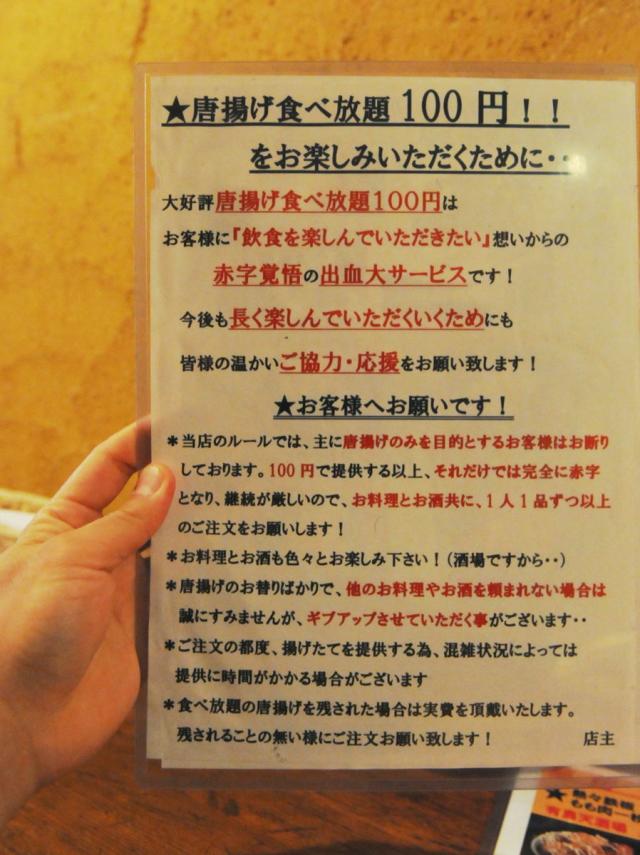 ★唐揚げ食べ放題 100 円！！
をお楽しみいただくために‥
大好評唐揚げ食べ放題100円は
お客様に『飲食を楽しんでいただきたい』想いからの
赤字覚悟の出血大サービスです！
今後も長く楽しんでいただくいくためにも
皆様の温かいご協力・応援をお願い致します！
★お客様へお願いです！
＊当店のルールでは、主に唐揚げのみを目的とするお客様はお断り
しております。100 円で提供する以上、それだけでは完全に赤字
となり、継続が厳しいので、お料理とお酒共に、１人１品ずつ以上
のご注文をお願いします！
＊お料理とお酒も色々とお楽しみ下さい！（酒場ですから‥）
＊唐揚げのお替りばかりで、他のお料理やお酒を頼まれない場合は
誠にすみませんが、ギブアップさせていただく事がございます‥
＊ご注文の都度、揚げたてを提供する為、混雑状況によっては
提供に時間がかかる場合がございます
＊食べ放題の唐揚げを残された場合は実費を頂戴いたします。
残されることの無い様にご注文お願い致します！ 店主
もも肉一枚